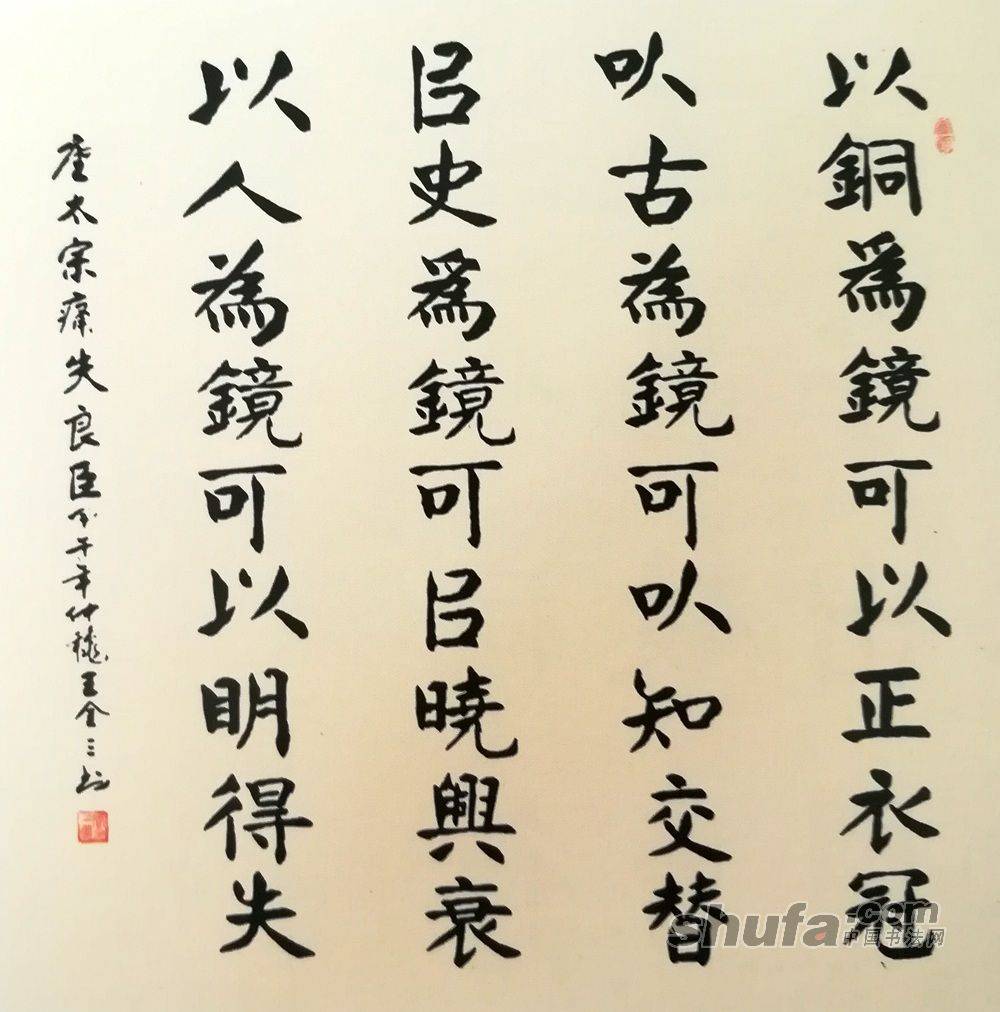 以銅為鏡可以正衣冠
以古為鏡可以知交替
㠯史為鏡可㠯曉興衰
以人為鏡可以明得失
唐太宗痛失良臣 年仲穐王全三
shufa.com
中国书法网